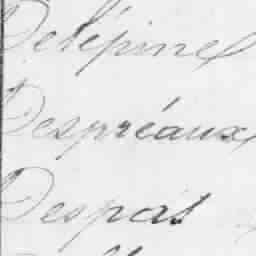 Delépine
Despréaux
Despas